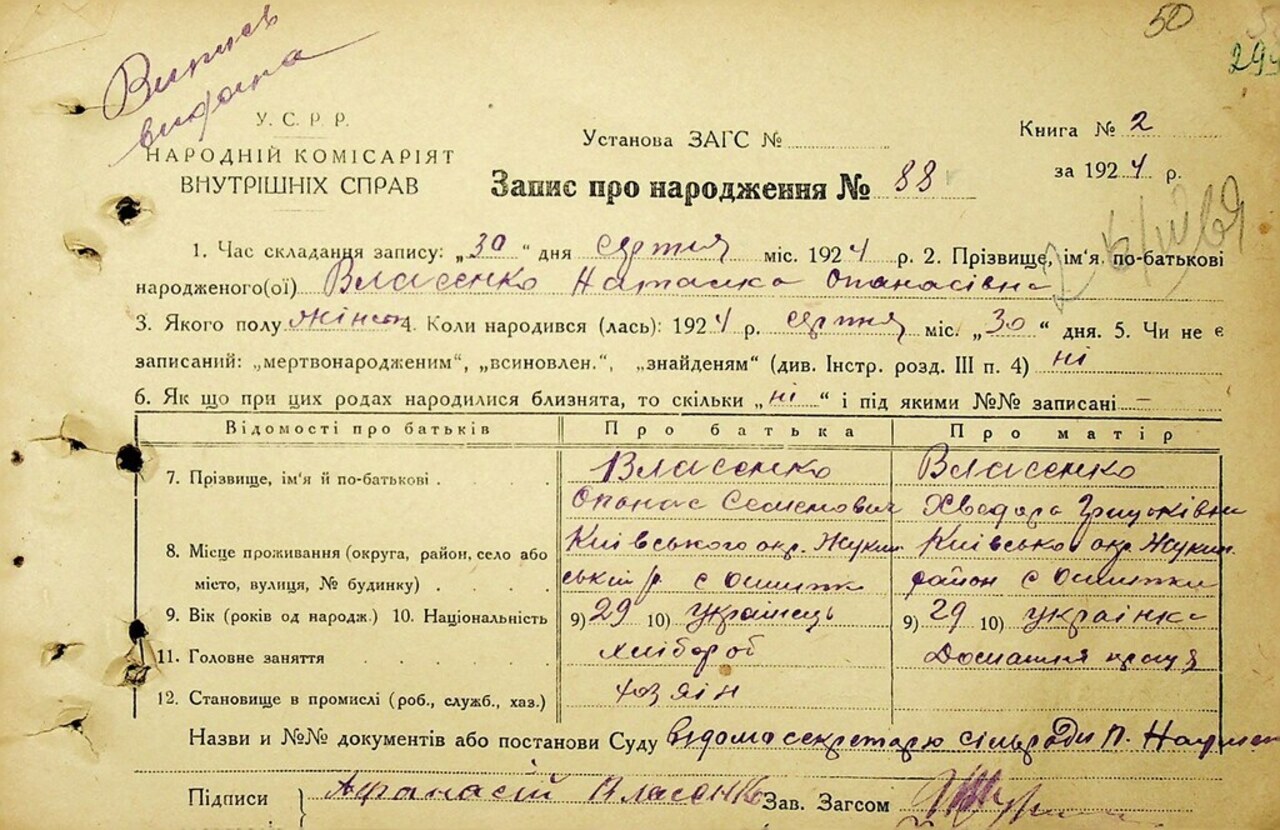 50
294
Випись
видана
У. С. Р. Р.
НАРОДНІЙ КОМІСАРІЯТ
ВНУТРІШНІХ СПРАВ
Установа ЗАГС №
Книга № 2
за 1924 р.
Запис про народження № 88
1. Час складання запису: „30“ дня серпня міс. 1924 р. 2. Прізвище, ім'я, по-батькові
народженого(ої) Власенко Наталка Опанасівна
3. Якого полу жіноч 4. Коли народився (лась): 1924 р. серпня міс. „30“ дня. 5. Чи не є
записаний: „мертвонародженим“, „всиновлен.“, „знайденям“ (див. Інстр. розд. III п. 4) ні
6. Як що при цих родах народилися близнята, то скільки „ні“ і під якими №№ записані —
Відомості про батьків Про батька Про матір
7. Прізвище, ім'я й по-батькові Власенко Власенко
Опанас Семенович Хведора Грицьківна
8. Місце проживання (округа, район, село або Київського окр. Жукин Київсько окр. Жукин.
місто, вулиця, № будинку) ській р. с Ошитк район с Ошитки
9. Вік (років од народж.) 10. Національність 9) 29 10) українець 9) 29 10) українка
11. Головне заняття хлібороб Домашня праця
12. Становище в промислі (роб., служб., хаз.) хозяін
Назви и №№ документів або постанови Суду відома секретарю сільради П.
Підписи Афанасій Власенко Зав. Загсом